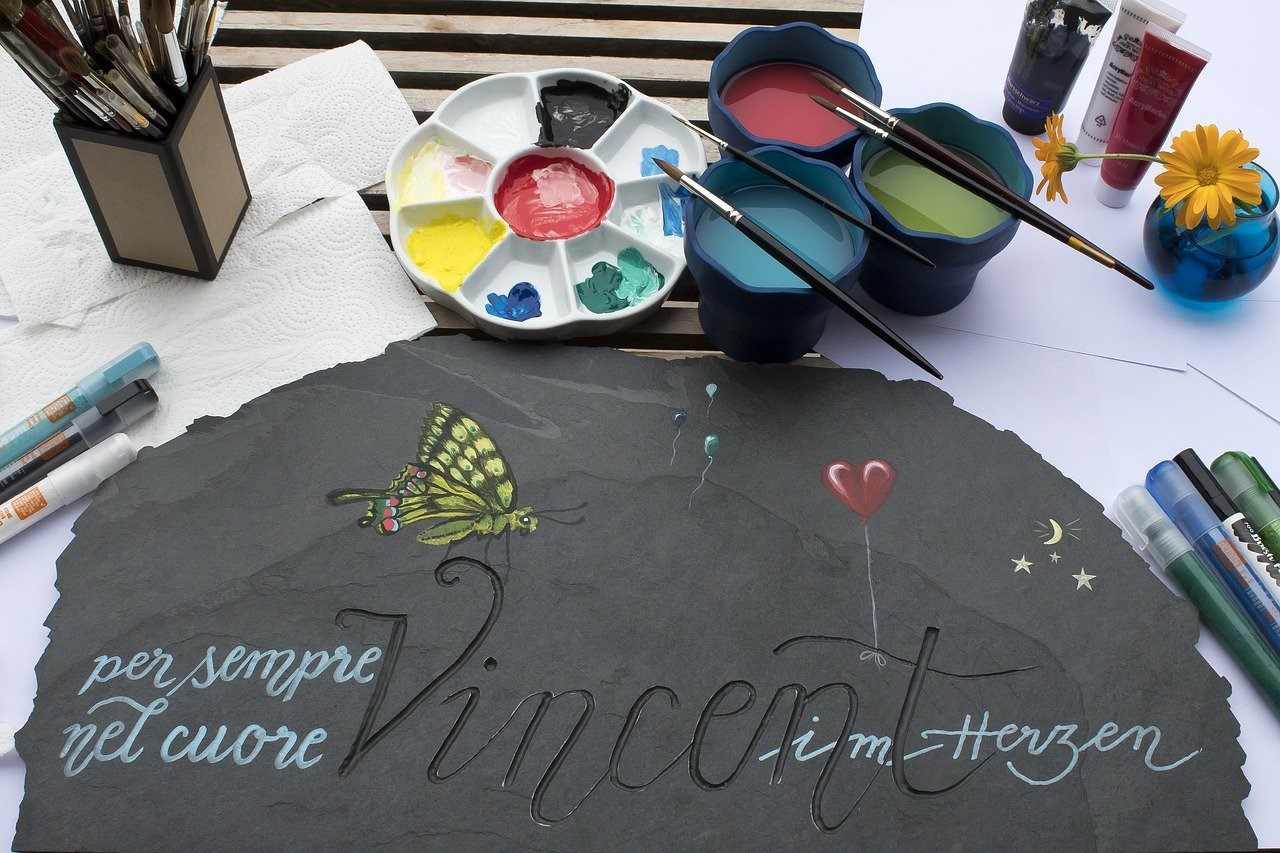 per sempre
nel cuore
Vincent
im Herzen